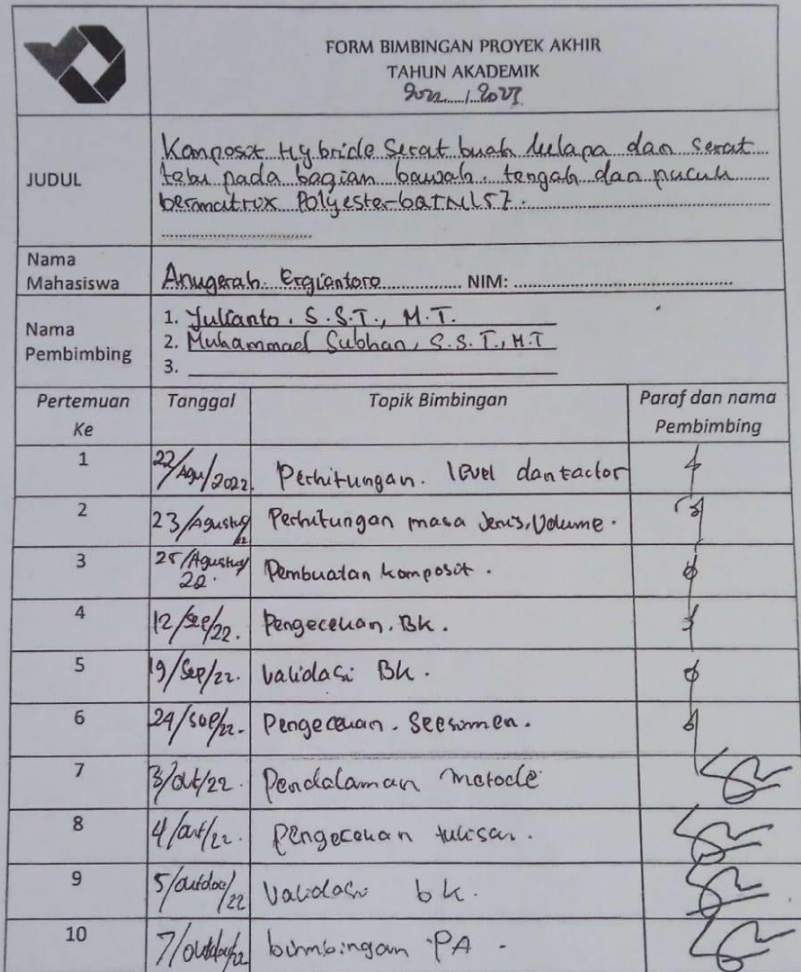 FORM BIMBINGAN PROYEK AKHIR
TAHUN AKADEMIK
2022 / 2023
JUDUL
Komposit Hybride Serat buah kelapa dan serat
tebu pada bagian bawah, tengah dan pucuk
bermatrix Polyester
Nama Mahasiswa
Anugerah Ergiantoro NIM:
Nama Pembimbing
1. Yulianto, S.S.T., M.T.
2. Muhammad Subhan, S.S.T., M.T
3.
Pertemuan Ke Tanggal Topik Bimbingan Paraf dan nama Pembimbing
1 22/Agu/2022. Perhitungan. level dan factor
2 23/Agustus/22 Perhitungan masa Jenis, Volume.
3 25/Agustus/22. Pembuatan komposit.
4 12/Sep/22. Pengecekan. Bk.
5 19/Sep/22. Validasi Bk.
6 24/Sep/22. Pengecekan.
7 3/okt/22. Pendalaman metode
8 4/okt/22. Pengecekan tulisan.
9 5/22 Validasi bk.
10 7/22 bimbingan PA -